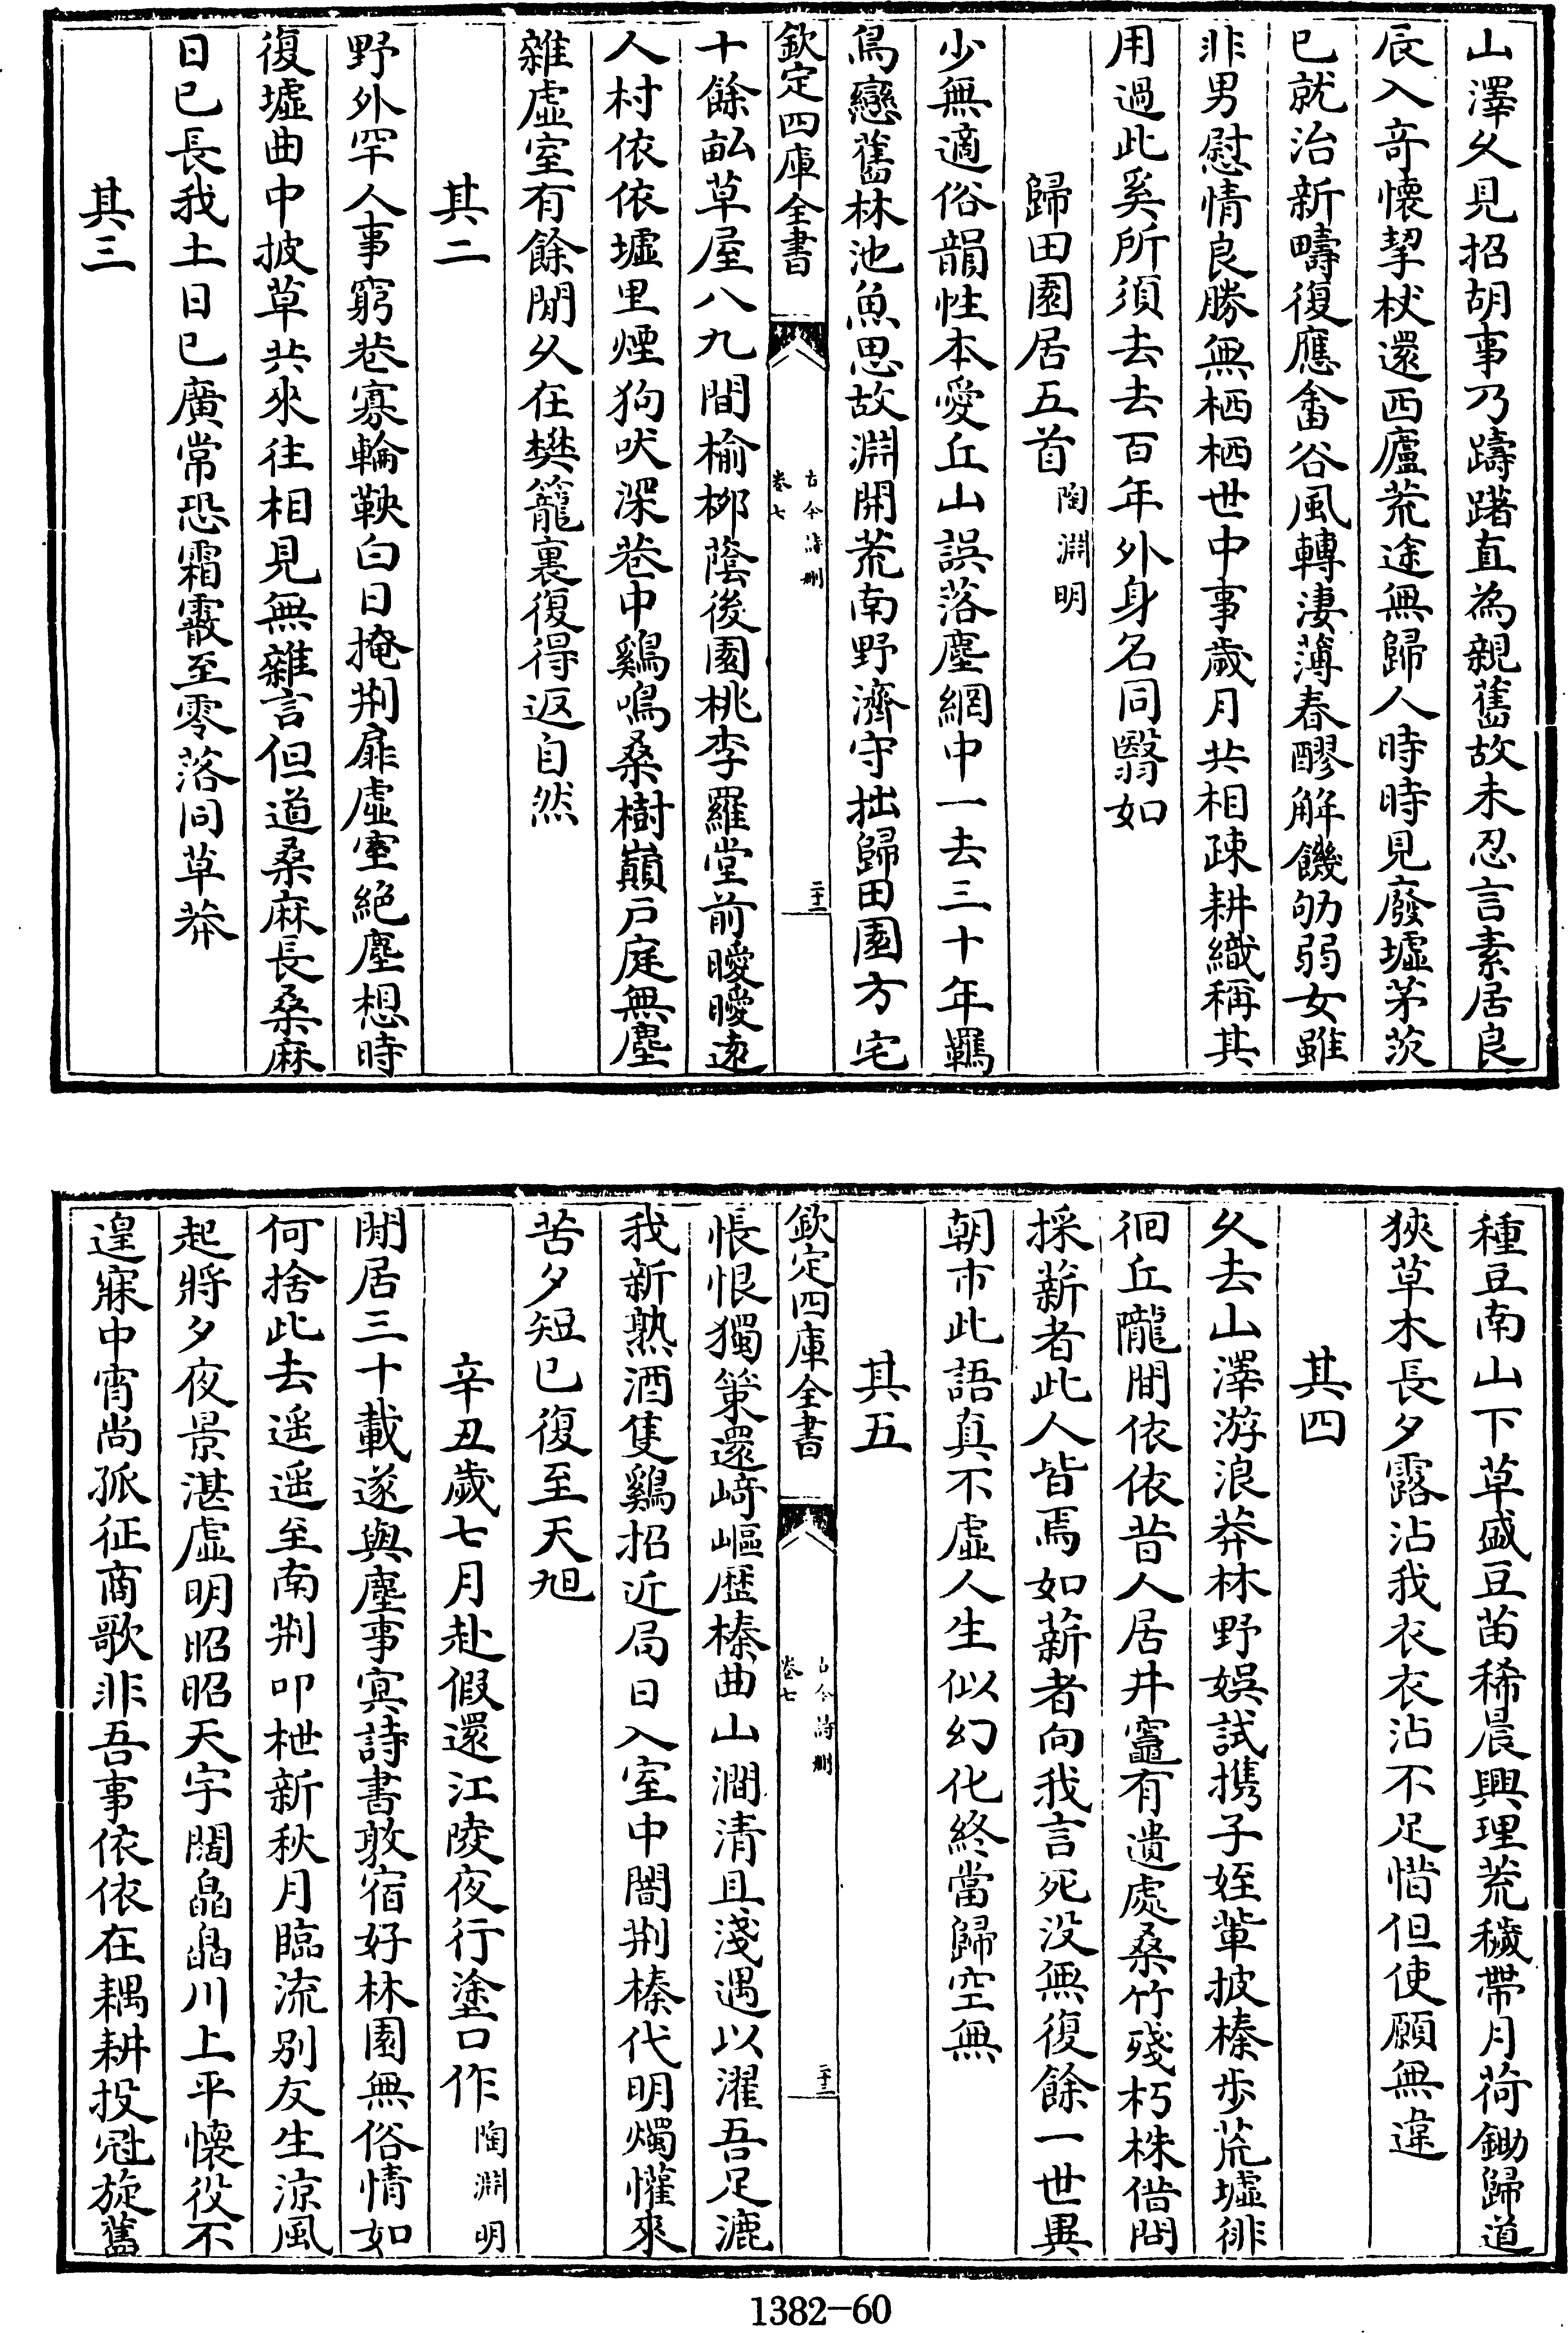 山澤乆見招胡事乃躊躇直為親舊故未忍言素居良
辰入竒懷挈杖還西廬荒途無歸人時時見廢墟茅茨
已就治新疇復應畬谷風轉淒薄春醪解饑劬弱女雖
非男慰情良勝無栖栖世中事歲月共相疎耕織稱其
用過此奚所須去去百年外身名同翳如
歸田園居五首陶淵明
少無適俗韻性本愛丘山誤落塵網中一去三十年羈
鳥戀舊林池魚思故淵開荒南野濟守拙歸田園方宅
欽定四庫全書 古今詩刪 卷七 二十二
十餘畝草屋八九間榆栁蔭後園桃李羅堂前曖曖逺
人村依依墟里煙狗吠深巷中鷄鳴桑樹巔戸庭無塵
雜虛室有餘閒乆在樊籠裏復得返自然
其二
野外罕人事窮巷寡輪鞅白日掩荆扉虛室絶塵想時
復墟曲中披草共來往相見無雜言但道桑麻長桑麻
日已長我土日已廣常恐霜霰至零落同草莽
其三
種豆南山下草盛豆苗稀晨興理荒穢帶月荷鋤歸道
狹草木長夕露沾我衣衣沾不足惜但使願無違
其四
乆去山澤游浪莽林野娱試携子姪輩披榛步荒墟徘
徊丘隴間依依昔人居井竈有遺處桑竹殘朽株借問
採薪者此人皆焉如薪者向我言死没無復餘一世異
朝市此語真不虛人生似幻化終當歸空無
其五
欽定四庫全書 古今詩刪 卷七 二十三
悵恨獨策還﨑嶇歴榛曲山澗清且淺遇以濯吾足漉
我新熟酒隻鷄招近局日入室中闇荆榛代明燭懽來
苦夕短已復至天旭
辛丑歲七月赴假還江陵夜行塗口作陶淵明
閒居三十載遂與塵事㝠詩書敦宿好林園無俗情如
何捨此去遥遥至南荆叩枻新秋月臨流别友生凉風
起將夕夜景湛虛明昭昭天宇闊皛皛川上平懷役不
遑寐中宵尚孤征商歌非吾事依依在耦耕投冠旋舊
1382-60